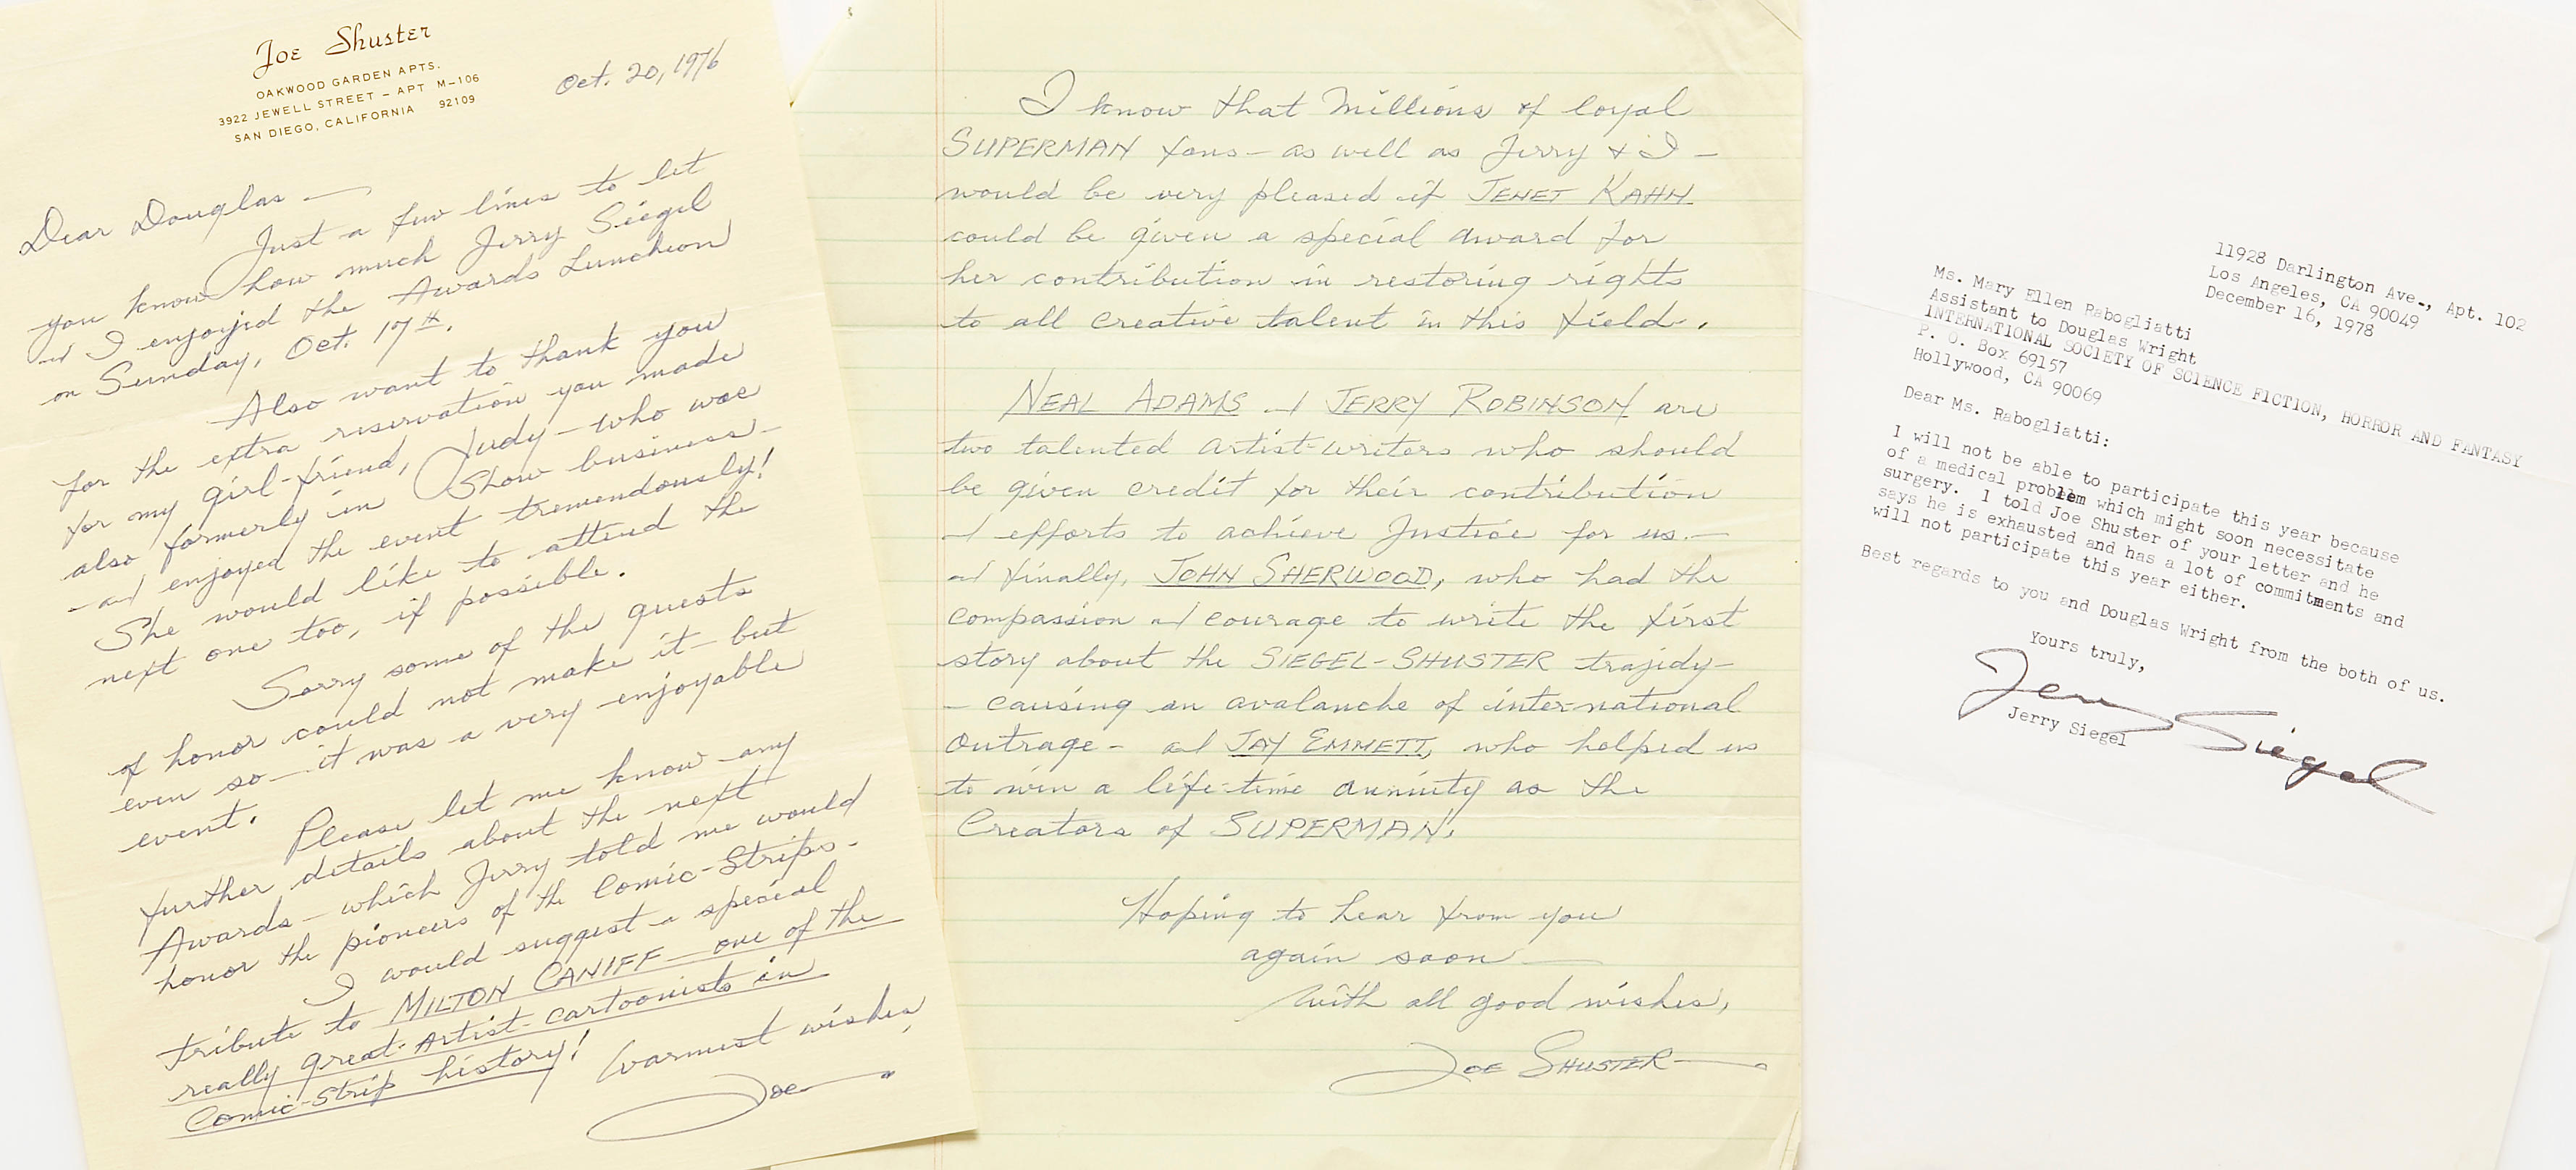 Joe Shuster
OAKWOOD GARDEN APTS.
3922 JEWELL STREET – APT M-106
SAN DIEGO, CALIFORNIA 92109
Oct. 20, 1976
Dear Douglas —
Just a few lines to let
you know how much Jerry Siegel
and I enjoyed the Awards Luncheon
on Sunday, Oct. 17th.
Also want to thank you
for the extra reservation you made
for my girl-friend, Judy – who was
also formerly in Show business –
– and enjoyed the event tremendously!
She would like to attend the
next one too, if possible.
Sorry some of the guests
of honor could not make it – but
even so – it was a very enjoyable
event.
Please let me know any
further details about the next
Awards – which Jerry told me would
honor the pioneers of the Comic-Strips.
I would suggest a special
tribute to MILTON CANIFF – one of the
really great Artist-cartoonists in
Comic-Strip history!
Warmest wishes,
Joe
I know that Millions of loyal
SUPERMAN fans – as well as Jerry & I –
would be very pleased if JENET KAHN
could be given a special award for
her contribution in restoring rights
to all creative talent in this field.
NEAL ADAMS and JERRY ROBINSON are
two talented Artist-writers who should
be given credit for their contribution
and efforts to achieve Justice for us. –
and finally, JOHN SHERWOOD, who had the
compassion and courage to write the first
story about the SIEGEL-SHUSTER trajidy –
– causing an avalanche of inter-national
Outrage – and JAY EMMETT, who helped us
to win a life-time annuity as the
Creators of SUPERMAN.
Hoping to hear from you
again soon —
with all good wishes,
JOE SHUSTER
11928 Darlington Ave., Apt. 102
Los Angeles, CA 90049
December 16, 1978
Ms. Mary Ellen Rabogliatti
Assistant to Douglas Wright
INTERNATIONAL SOCIETY OF SCIENCE FICTION, HORROR AND FANTASY
P. O. Box 69157
Hollywood, CA 90069
Dear Ms. Rabogliatti:
I will not be able to participate this year because
of a medical problem which might soon necessitate
surgery. I told Joe Shuster of your letter and he
says he is exhausted and has a lot of commitments and
will not participate this year either.
Best regards to you and Douglas Wright from the both of us.
Yours truly,
Jerry Siegel
Jerry Siegel